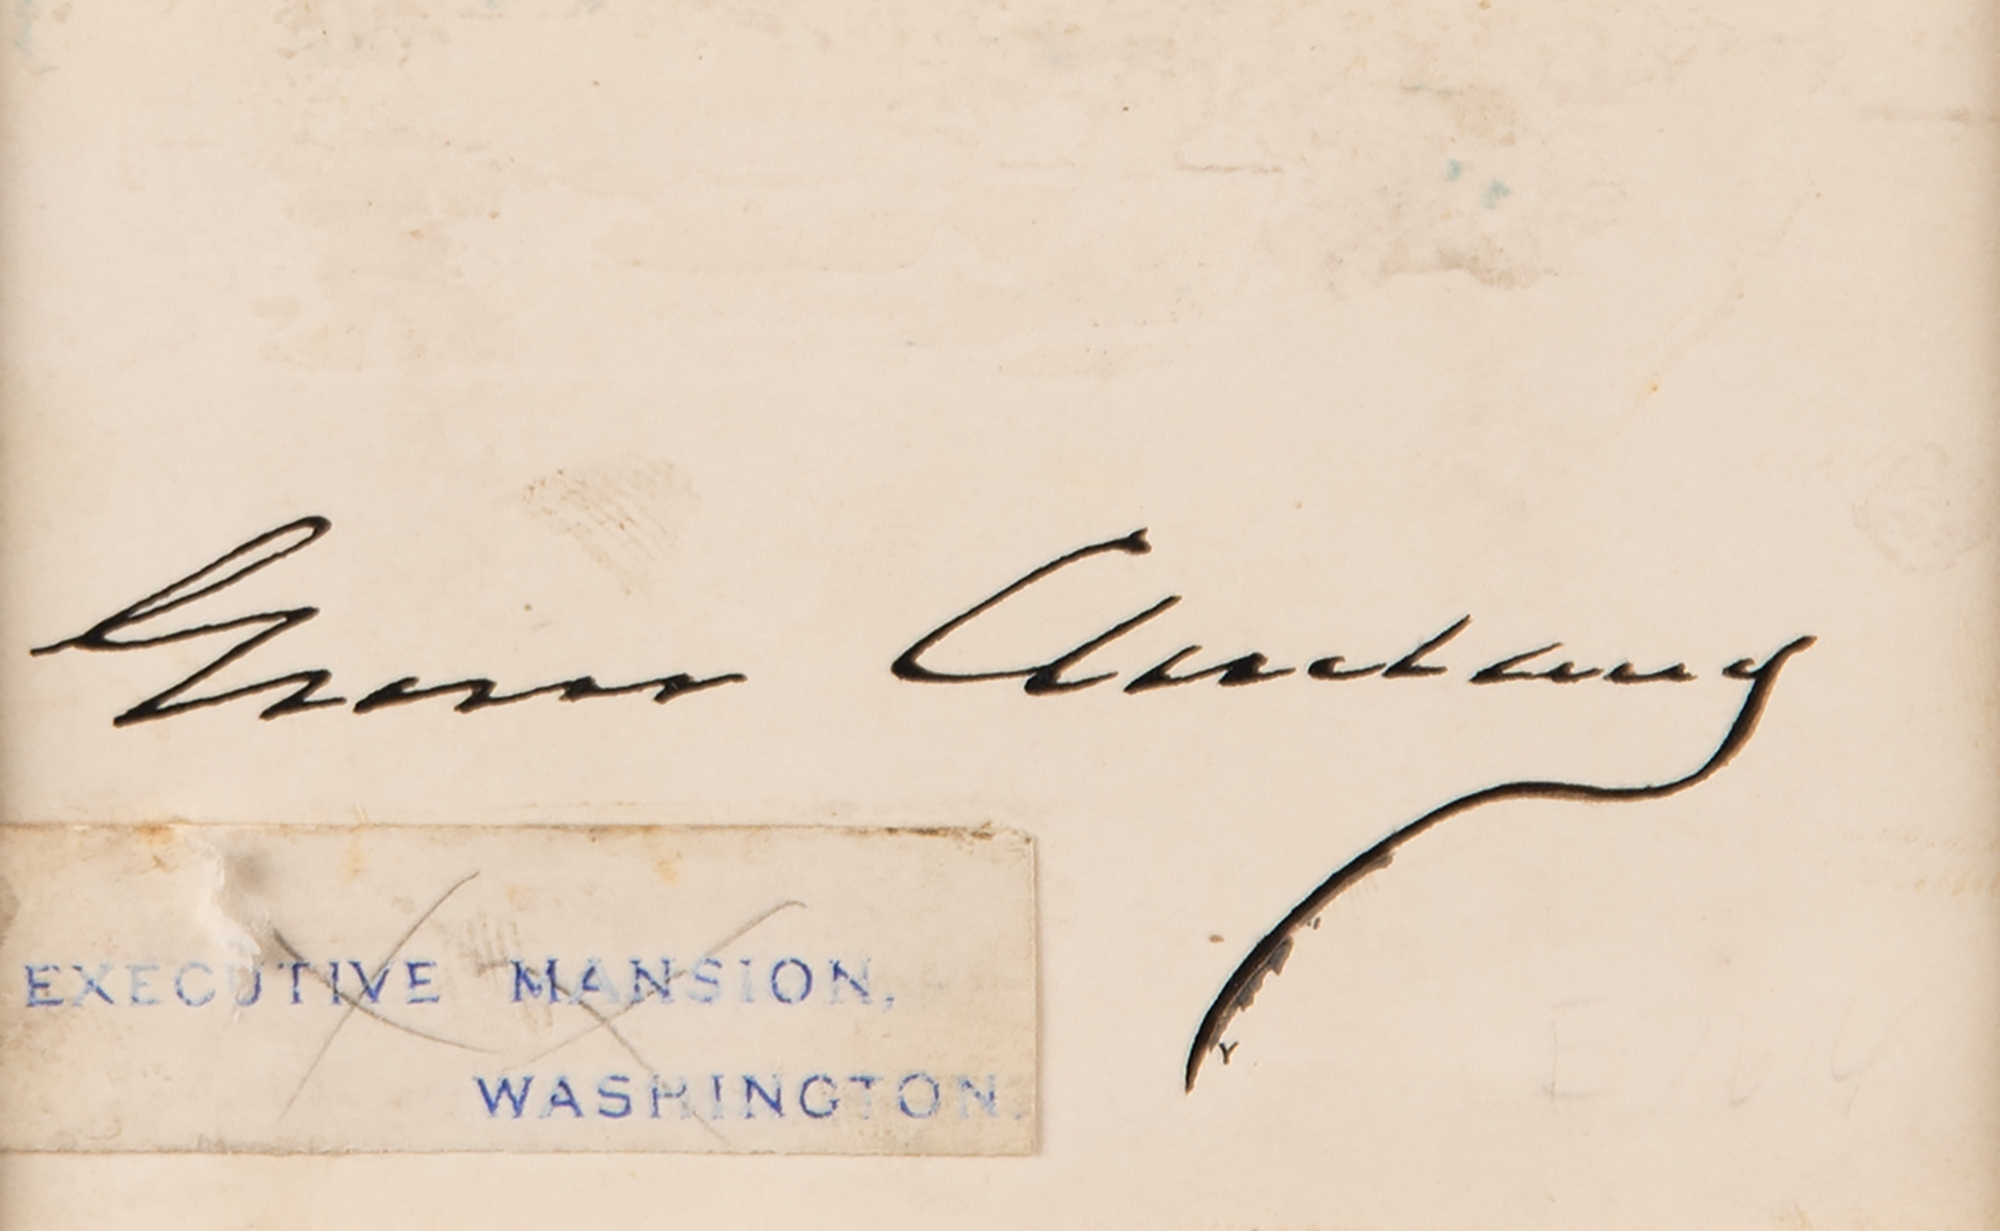 Grover Cleveland
EXECUTIVE MANSION,
WASHINGTON.